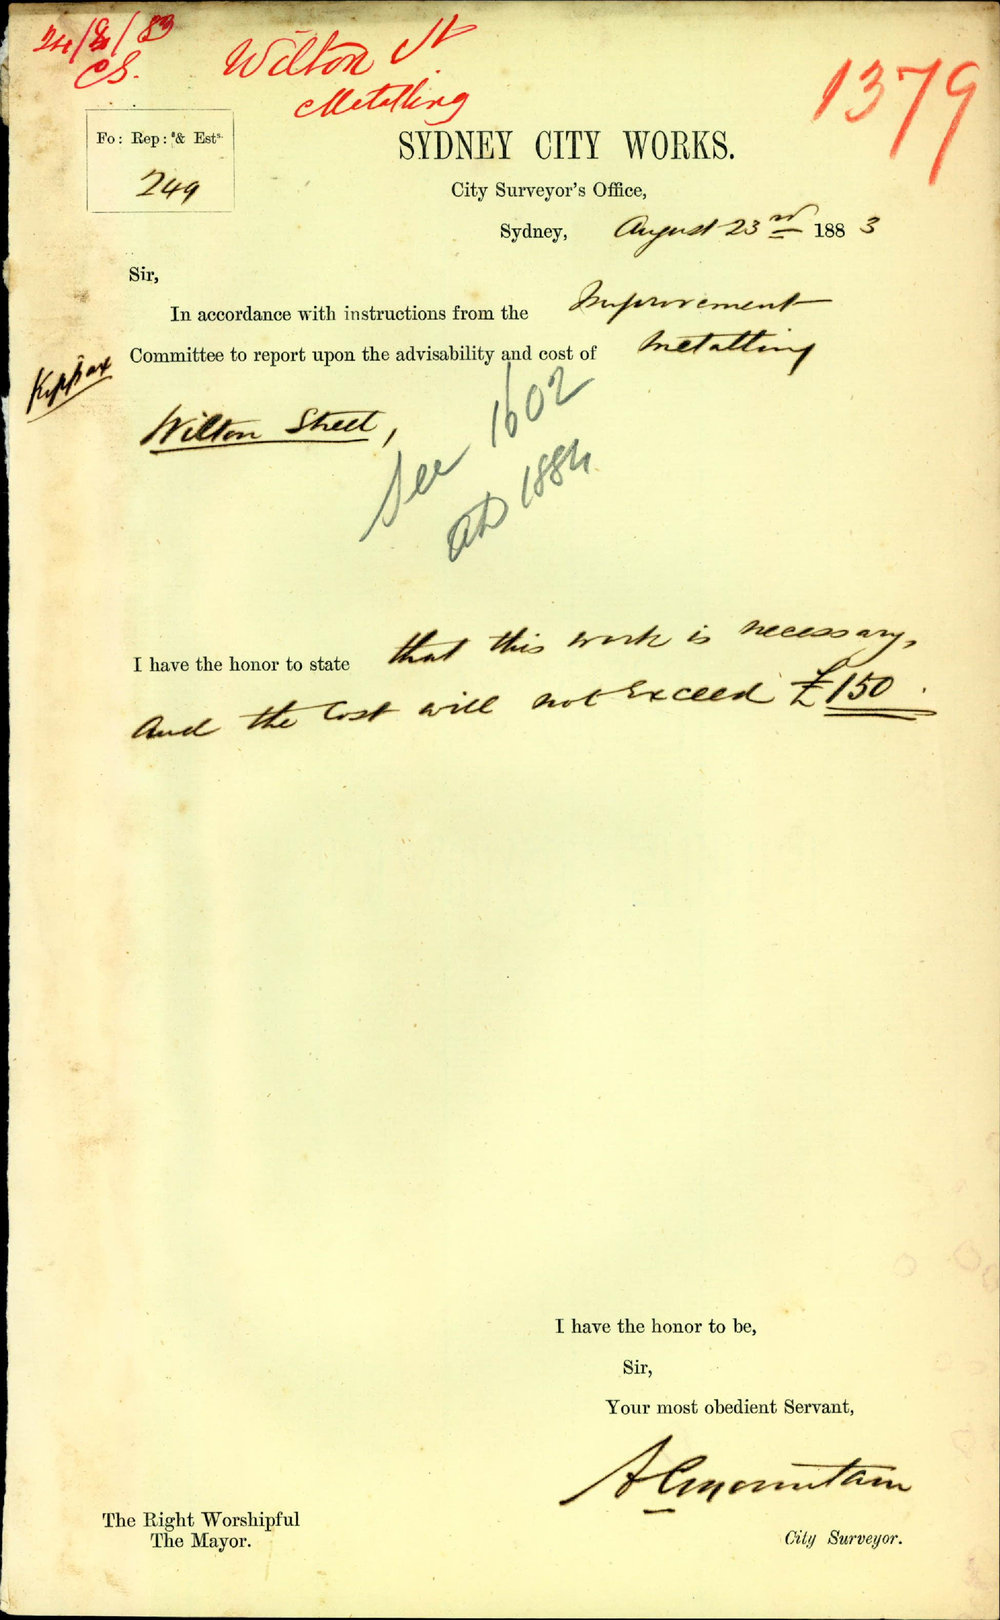 24/8/83
CS.
Wilton St
Metalling
1379
Fo: Rep: & Ests.
249
SYDNEY CITY WORKS.
City Surveyor's Office,
Sydney, August 23rd 1883
Sir,
In accordance with instructions from the Improvement
Committee to report upon the advisability and cost of metalling
Kippax
Wilton Street,
See 1602
AD 1884
I have the honor to state that this work is necessary,
and the Cost will not Exceed £150.
I have the honor to be,
Sir,
Your most obedient Servant,
A C Mountain
City Surveyor.
The Right Worshipful
The Mayor.